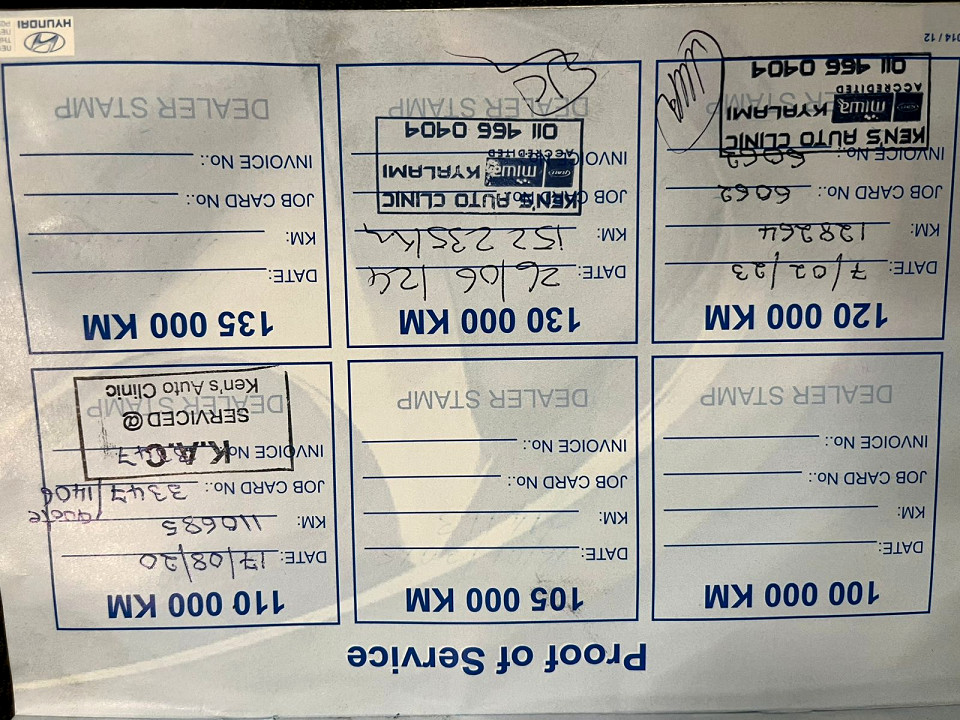 Proof of Service
100 000 KM
DATE:
KM:
JOB CARD No.:
INVOICE No.:
DEALER STAMP
105 000 KM
DATE:
KM:
JOB CARD No.:
INVOICE No.:
DEALER STAMP
110 000 KM
DATE: 17/08/20
KM: 110685
Quote
JOB CARD No.: 3347/1406
INVOICE No.: 3347
K.A.C
SERVICED @
Ken's Auto Clinic
DEALER STAMP
120 000 KM
DATE: 7/02/23
KM: 128264
JOB CARD No.: 6062
INVOICE No.: 6062
KEN'S AUTO CLINIC
miwa KYALAMI
ACCREDITED
011 466 0404
DEALER STAMP
130 000 KM
DATE: 26/06/24
KM: 152235 km
JOB CARD No.:
INVOICE No.:
KEN'S AUTO CLINIC
miwa KYALAMI
ACCREDITED
011 466 0404
DEALER STAMP
135 000 KM
DATE:
KM:
JOB CARD No.:
INVOICE No.:
DEALER STAMP
014 / 12
HYUNDAI